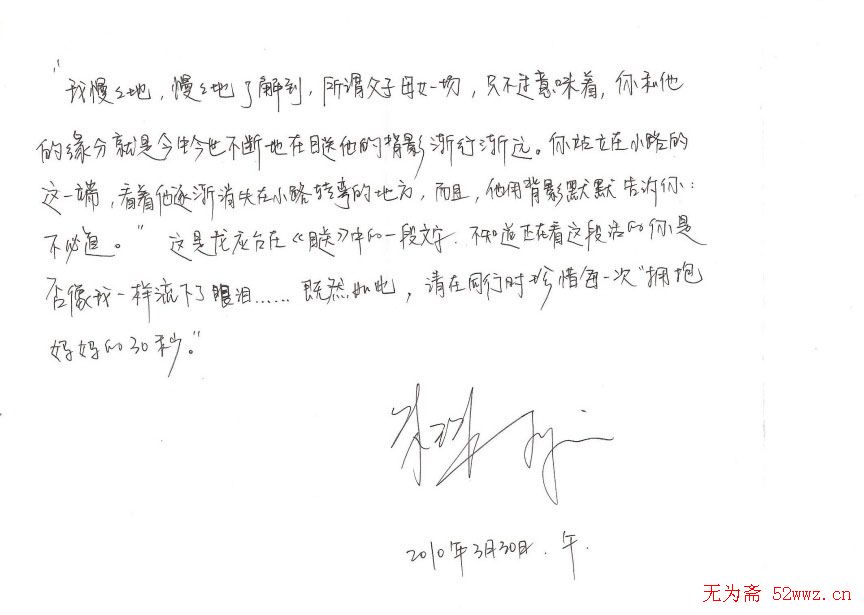 “我慢慢地,慢慢地了解到,所谓父子母女一场,只不过意味着,你和他
的缘分就是今生今世不断地在目送他的背影渐行渐远。你站立在小路的
这一端,看着他逐渐消失在小路转弯的地方,而且,他用背影默默告诉你:
不必追。” 这是龙应台在《目送》中的一段文字.不知道正在看这段话的你是
否像我一样流下了眼泪……既然如此,请在同行时珍惜每一次“拥抱
妈妈的30秒。”
2010年3月30日.午.
无为斋 52wwz.cn